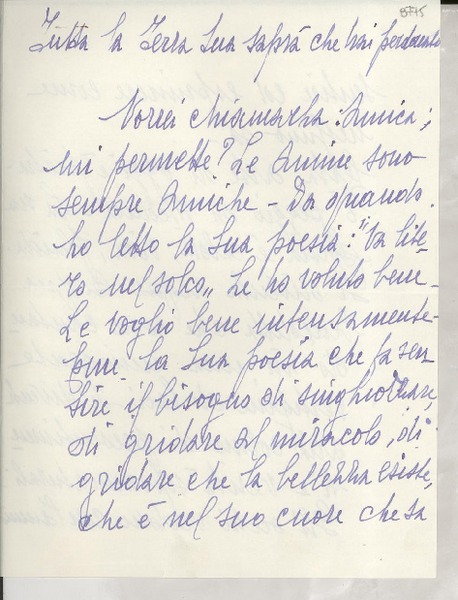 8745
Tutta la Terra Sua saprà che hai perdonato
Vorrei chiamarla: Amica;
mi permette? Le Anime sono
sempre Amiche - Da quando
ho letto la Sua poesia: "Va lite-
ro nel solco„ Le ho voluto bene -
Le voglio bene intensamente -
Bene la Sua poesia che fa sen-
tire il bisogno di singhiozzare,
di gridare al miracolo, di
gridare che la bellezza esiste,
che è nel suo cuore che sa